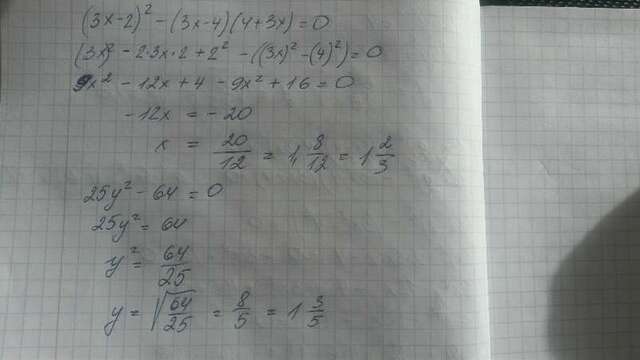 (3x-2)² - (3x-4)(4+3x)=0
(3x)² - 2·3x·2+2² - ((3x)² - (4)²)=0
9x² - 12x + 4 - 9x² + 16 = 0
-12x = -20
x = 20/12 = 1 8/12 = 1 2/3
25y² - 64 = 0
25y² = 64
y² = 64/25
y = √(64/25) = 8/5 = 1 3/5